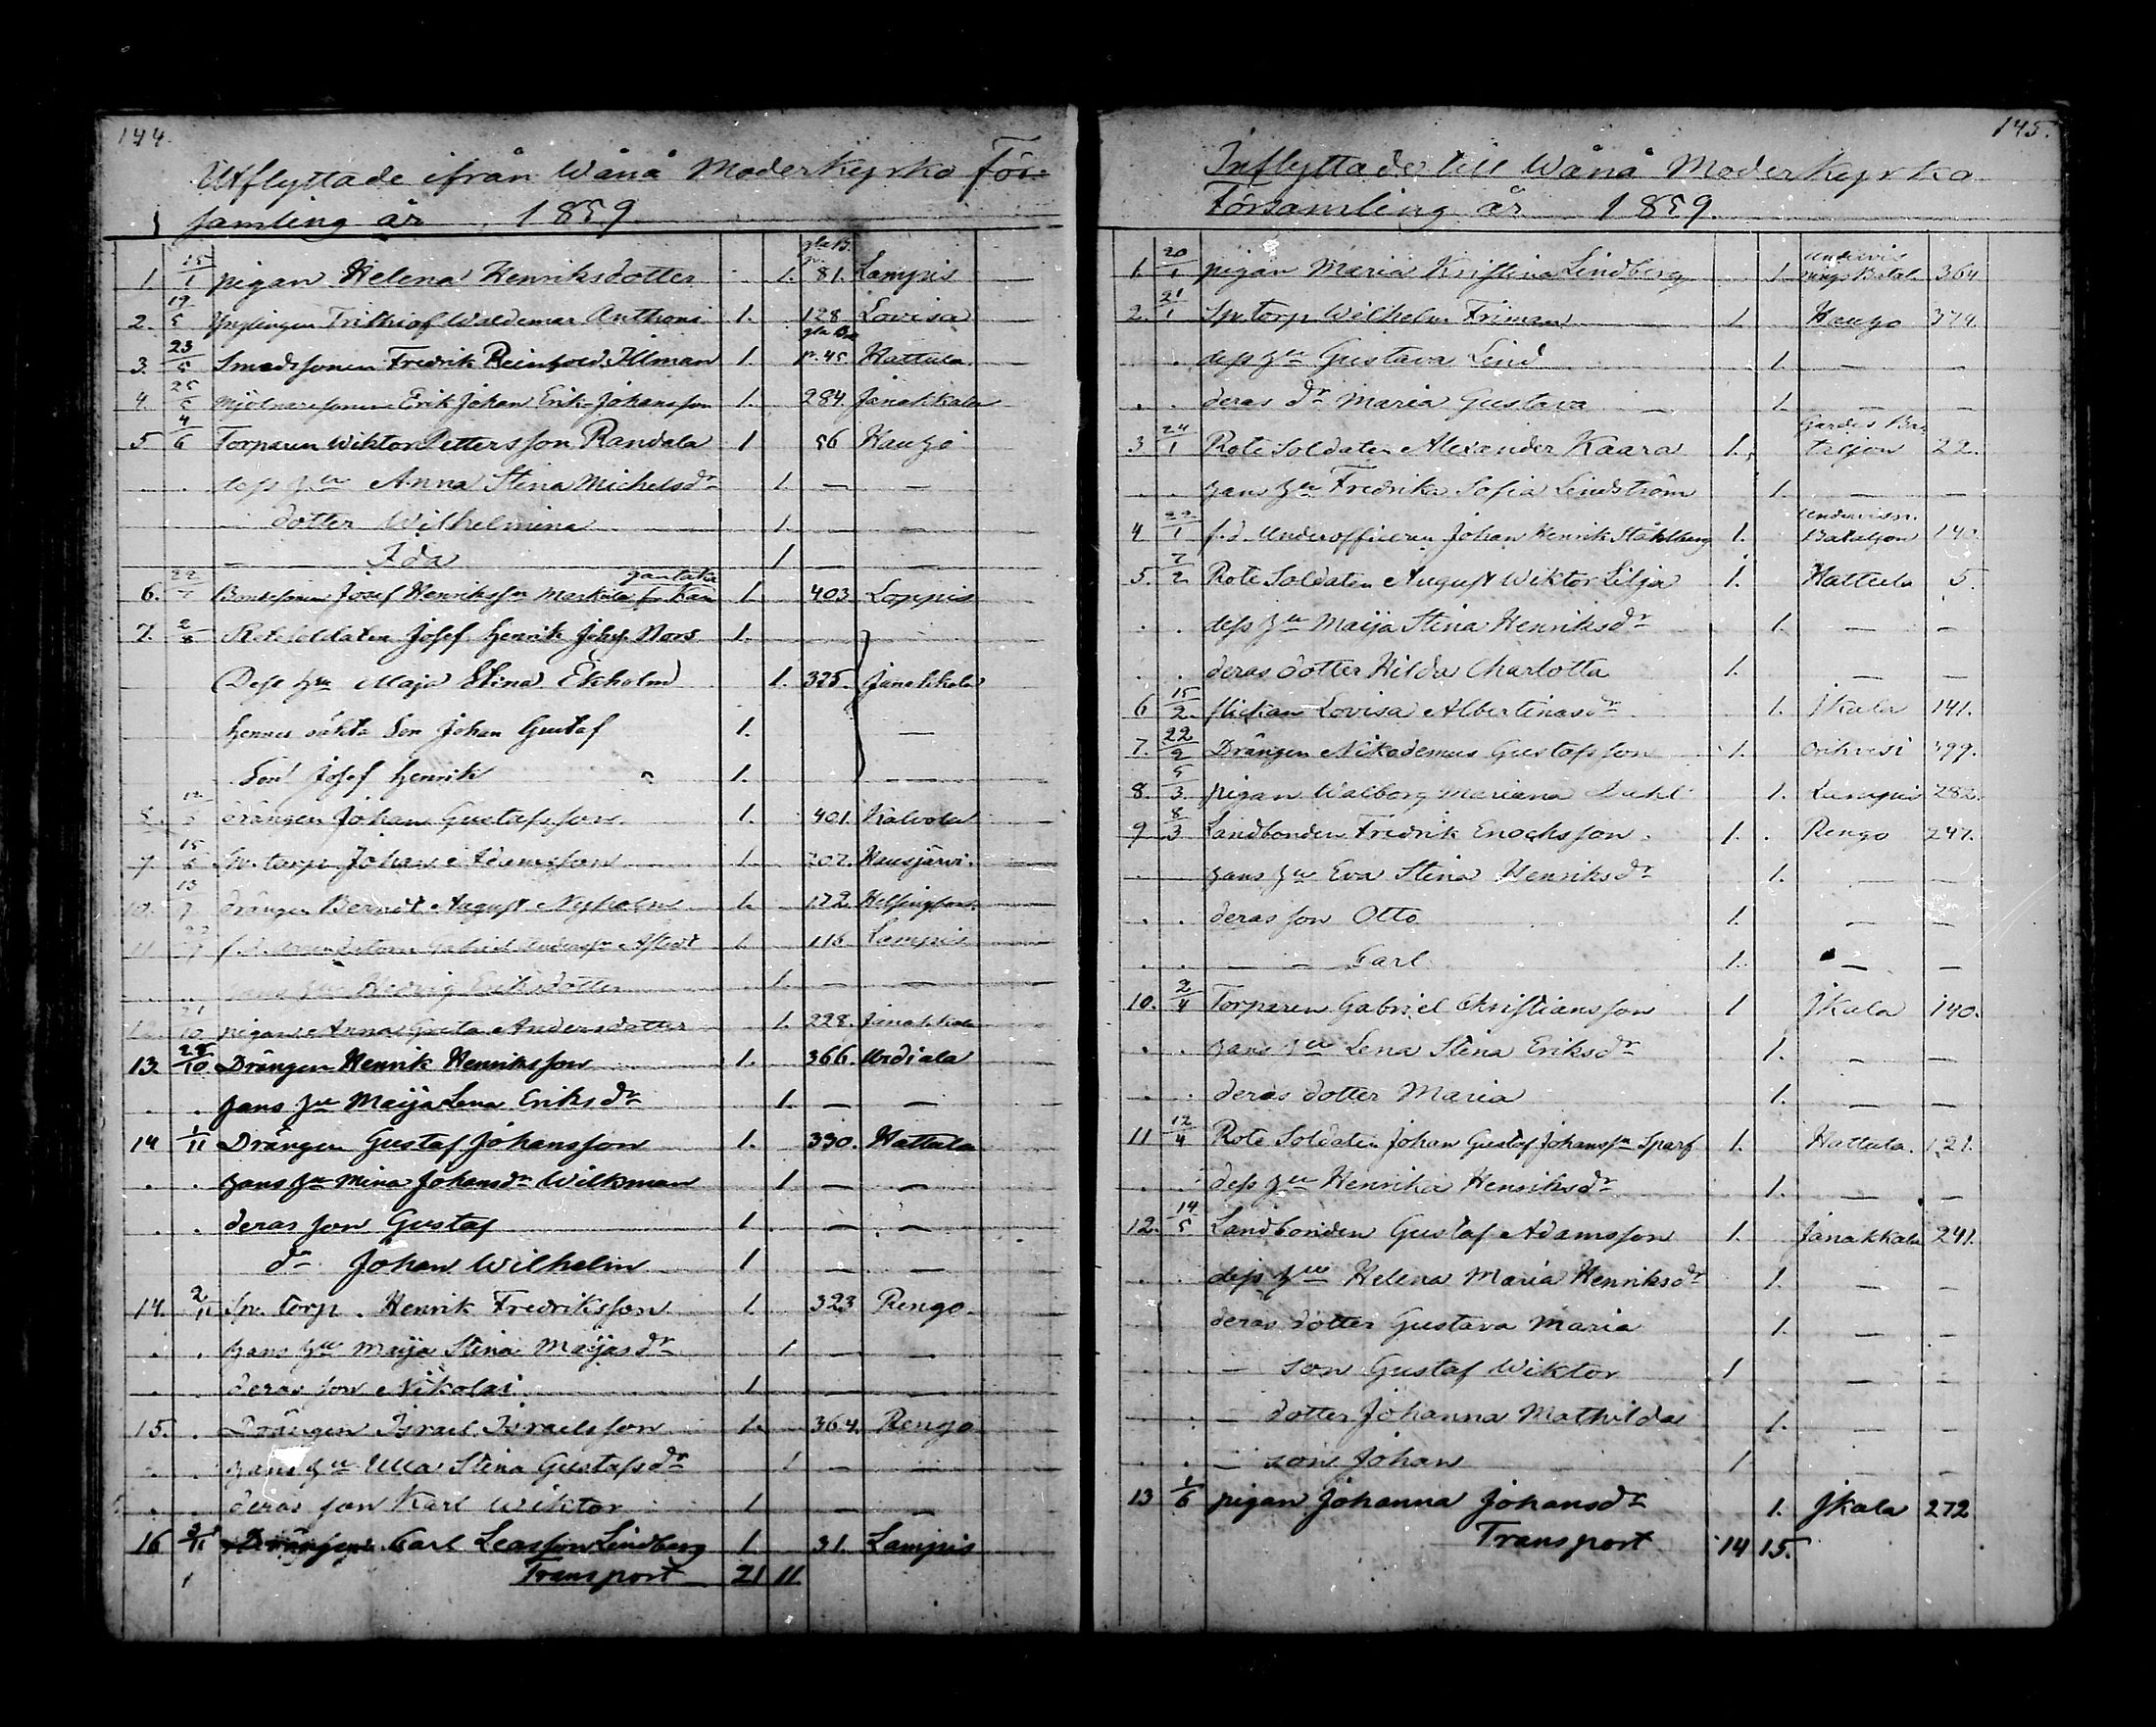 144.
Utflyttade ifrån Wånå Moderkyrko För-
samling år 1859
1. 15/1 pigan Helena Henriksdotter 1. gla B. p. 81. Lampis
2. 19/5 Ynglingen Frithiof Waldemar Anthoni 1. 128 Lovisa
3. 23/5 Smedssonen Fredrik Reinhold Illman 1. gla B. p. 45 Hattula
4. 25/5 Mjölnaresonen Erik Johan Erik-Johansson 1. 284. Janakkala
5 4/6 Torparen Wiktor Pettersson Randala 1 56 Haugo
. . dess hu Anna Stina Michelsdr 1. — —
dotter Wilhelmina 1. — —
— Ida 1 — —
6. 22/7 Bondesonen Josef Henriksson Markula 1. 403 Loppis
7. 2/8 Rotesoldaten Josef Henrik Johss. Nors 1.
Dess hu Maja Stina Ekholm 1. 325. Janakkala
hennes oäkta Son Johan Gustaf 1. —
Son Josef Henrik 1. —
8. drängen Johan Gustafsson 1. 401. Kalvola
15/6 Sp. torp Johan Adamsson 1. 202. Hausjärvi.
10. 13/7 drängen Berndt August Nyholm 1. 172. Helsingfors.
11 f.d. Gabriel Andersson 1. 116 Lampis
hans hu Hedvig Eriksdotter 1. — —
12. 21/10 pigan Anna Greta Andersdotter 1. 228. Janakkala
13. 25/10 Drängen Henrik Henriksson 1. 366. Urdiala
. . hans hu Maija Lena Eriksdr 1. — —
14 1/11 Drängen Gustaf Johansson 1. 330. Hattula
. . hans hu Mina Johansdr Wilkman 1 — —
. . deras son Gustaf 1. — —
dn Johan Wilhelm 1 — —
14. 2/11 Sp. torp. Henrik Fredriksson 1. 323 Rengo.
. . hans hu Maija Stina Maijasdr 1. — —
. . deras son Nikolai 1 — —
15. . Drängen Israel Israelsson 1. 364. Rengo
. . hans hu Ulla Stina Gustafsdr 1 — —
. . deras son Karl Wiktor 1 — —
16 Drängen Carl Leasson Lindberg 1. 31. Lampis
Transport 21 11
145.
Inflyttade till Wånå Moderkyrko
Församling år 1859.
1. 20/1 pigan Maria Kristina Lindberg 1. Undervisnings Batal. 364
2. 21/1 Sp. torp Wilhelm Friman 1. Haugo 374.
. dess hu Gustava Lind 1. — —
. . deras dr Maria Gustava 1. — —
3 24/1 Rote Soldaten Alexander Kaara 1. Gardes Bataljon 22.
. . hans hu Fredrika Sofia Lindström 1. — —
4 22/1 f.d. Underofficeren Johan Henrik Ståhlberg 1. Undervisn. Bataljon 140.
5. 7/2 Rote Soldaten August Wiktor Lilja 1. Hattula 5.
. . dess hu Maija Stina Henriksdr 1. — —
. . deras dotter Hilda Charlotta 1. — —
6 15/2 flickan Lovisa Albertinasdr 1. Jkala 141.
7. 22/2 Drängen Nikodemus Gustafsson 1. Orihvesi 499.
8. 5/3 pigan Walborg Mariana Dahl 1. Lampis 282.
9 8/3 Landbonden Fredrik Enochsson 1. Rengo 247.
hans hu Eva Stina Henriksdr 1. — —
. . deras son Otto 1. — —
. . — — Carl 1. — —
10. 2/4 Torparen Gabriel Christiansson 1 Jkala 140.
. . hans hu Lena Stina Eriksdr 1. — —
. . deras dotter Maria 1. — —
11 12/4 Rote Soldaten Johan Gustaf Johansson Sparf 1. Hattula. 121.
. . dess hu Henrika Henriksdr 1. — —
12. 14/5 Landbonden Gustaf Adamsson 1. Janakkala 241.
. . dess hu Helena Maria Henriksdr 1. — —
deras dotter Gustava Maria 1. — —
. . — son Gustaf Wiktor 1 — —
. — dotter Johanna Mathilda 1. — —
. . — son Johan 1 — —
13 1/6 pigan Johanna Johansdr 1. Jkala 272
Transport 14 15.